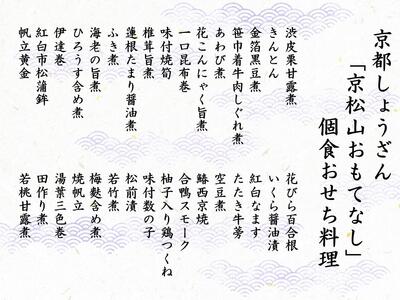 京都しょうざん
「京松山おもてなし」
個食おせち料理
渋皮栗甘露煮
きんとん
金箔黒豆煮
笹巾着牛肉しぐれ煮
あわび煮
花こんにゃく旨煮
一口昆布巻
味付焼筍
椎茸旨煮
蓮根たまり醤油煮
ふき煮
海老の旨煮
ひろうす含め煮
伊達巻
紅白市松蒲鉾
帆立黄金
花びら百合根
いくら醤油漬
紅白なます
たたき牛蒡
空豆煮
鰆西京焼
合鴨スモーク
柚子入り鶏つくね
味付数の子
松前漬
若竹煮
梅麩含め煮
焼帆立
湯葉三色巻
田作り煮
若桃甘露煮